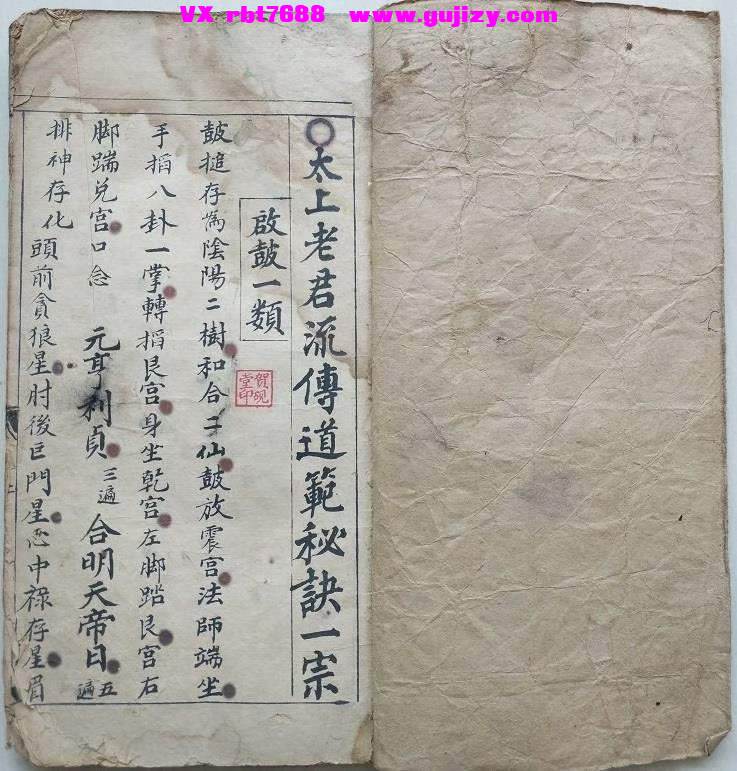 VX rbt7688 www.gujizy.com
〇太上老君流傳道範秘訣一宗
啟鼓一類
鼓搥存為陰陽二樹和合二仙鼓放震宮法師端坐
手搯八卦一掌轉搯艮宮身坐乾宮左脚踏艮宮右
脚踹兌宮口念 元亨利貞三遍 合明天帝日五遍
排神存化 頭前貪狼星肘後巨門星心中祿存星眉
賀硯堂印